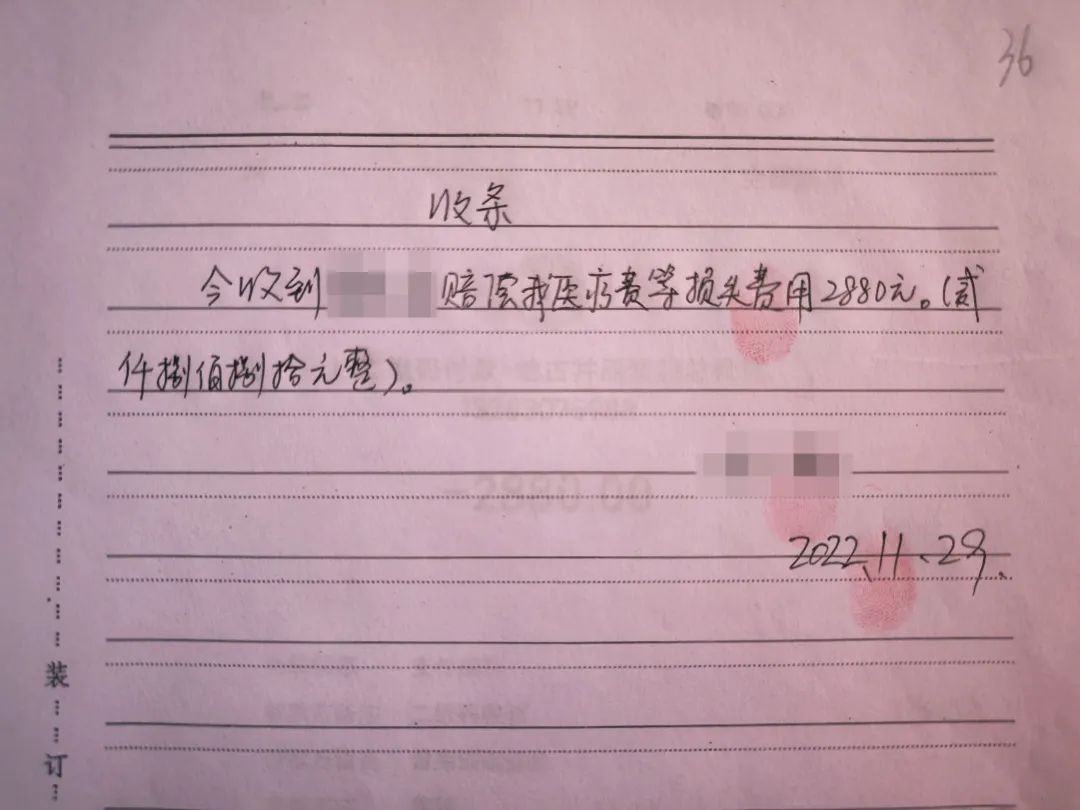 36
收条
今收到 赔偿我医疗费等损失费用2880元。(贰
仟捌佰捌拾元整)。
-2880.00
2022.11.29.
装
订